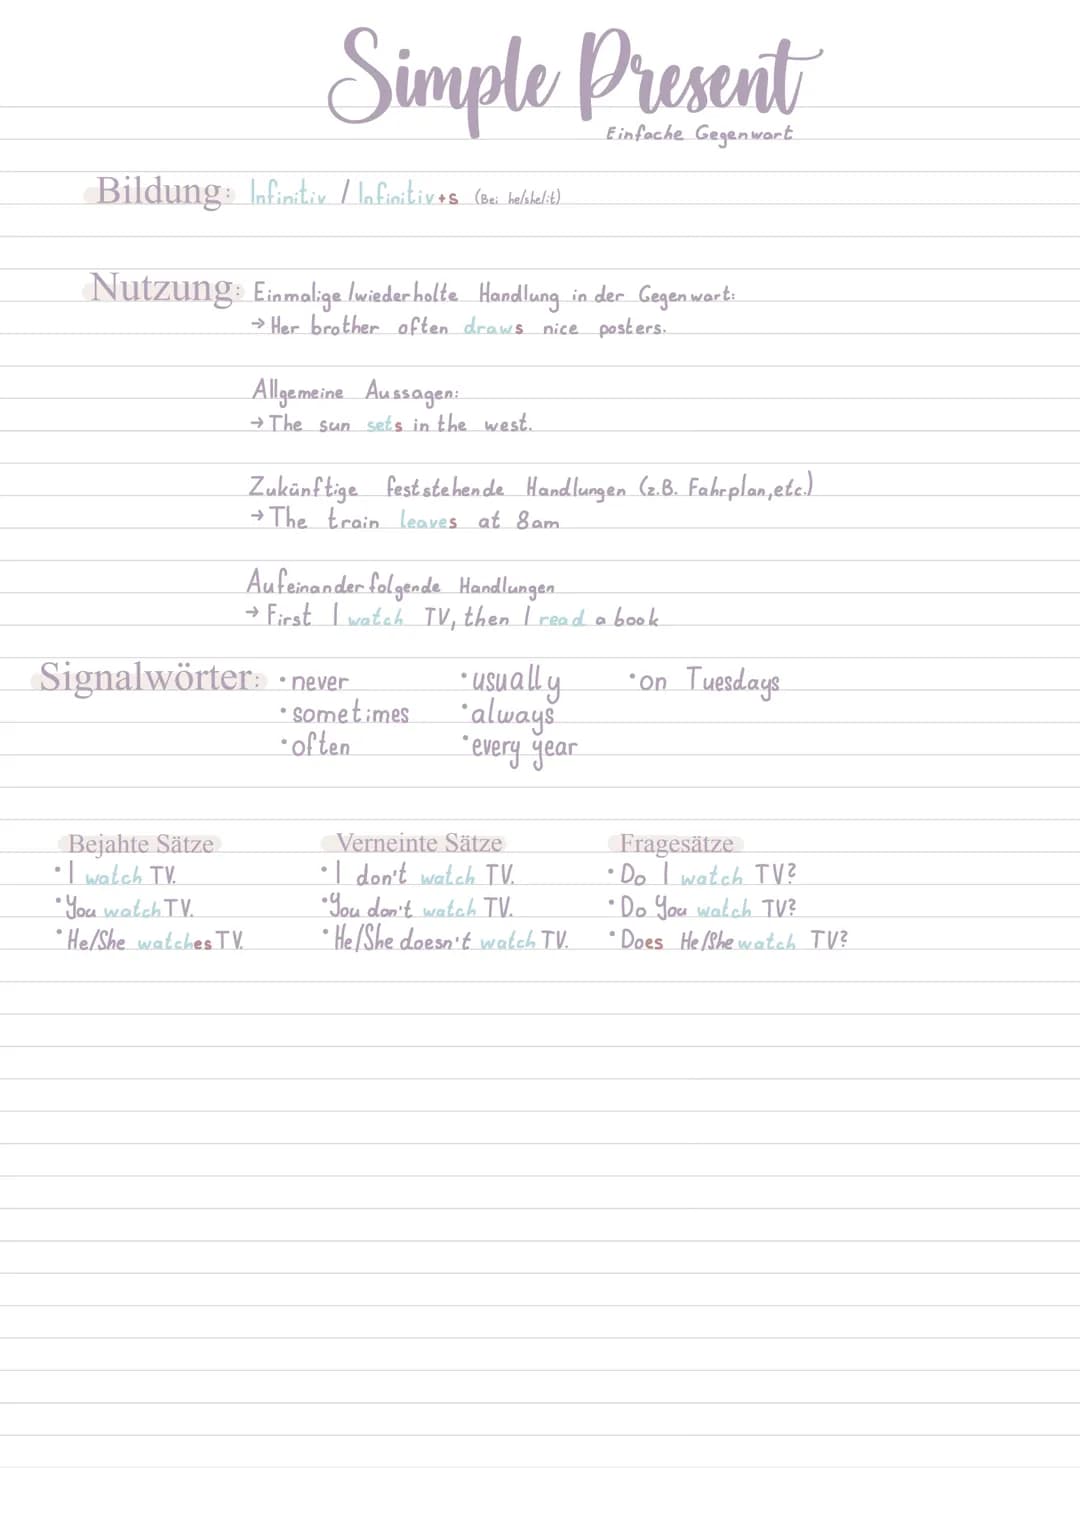 Simple Present
Einfache Gegenwart
Bildung: Infinitiv / Infinitiv+s (Bei he/she/it)
Nutzung: Einmalige /wiederholte Handlung in der Gegenwart:
→ Her brother often draws nice posters.
Allgemeine Aussagen:
→ The sun sets in the west.
Zukünftige feststehende Handlungen (z.B. Fahrplan,etc.)
→ The train leaves at 8am
Aufeinanderfolgende Handlungen
→ First I watch TV, then I read a book
Signalwörter: • never • usually • on Tuesdays
• sometimes • always
• often • every year
Bejahte Sätze Verneinte Sätze Fragesätze
• I watch TV. • I don't watch TV. • Do I watch TV?
• You watch TV. • You don't watch TV. • Do You watch TV?
• He/She watches TV. • He/She doesn't watch TV. • Does He/She watch TV?